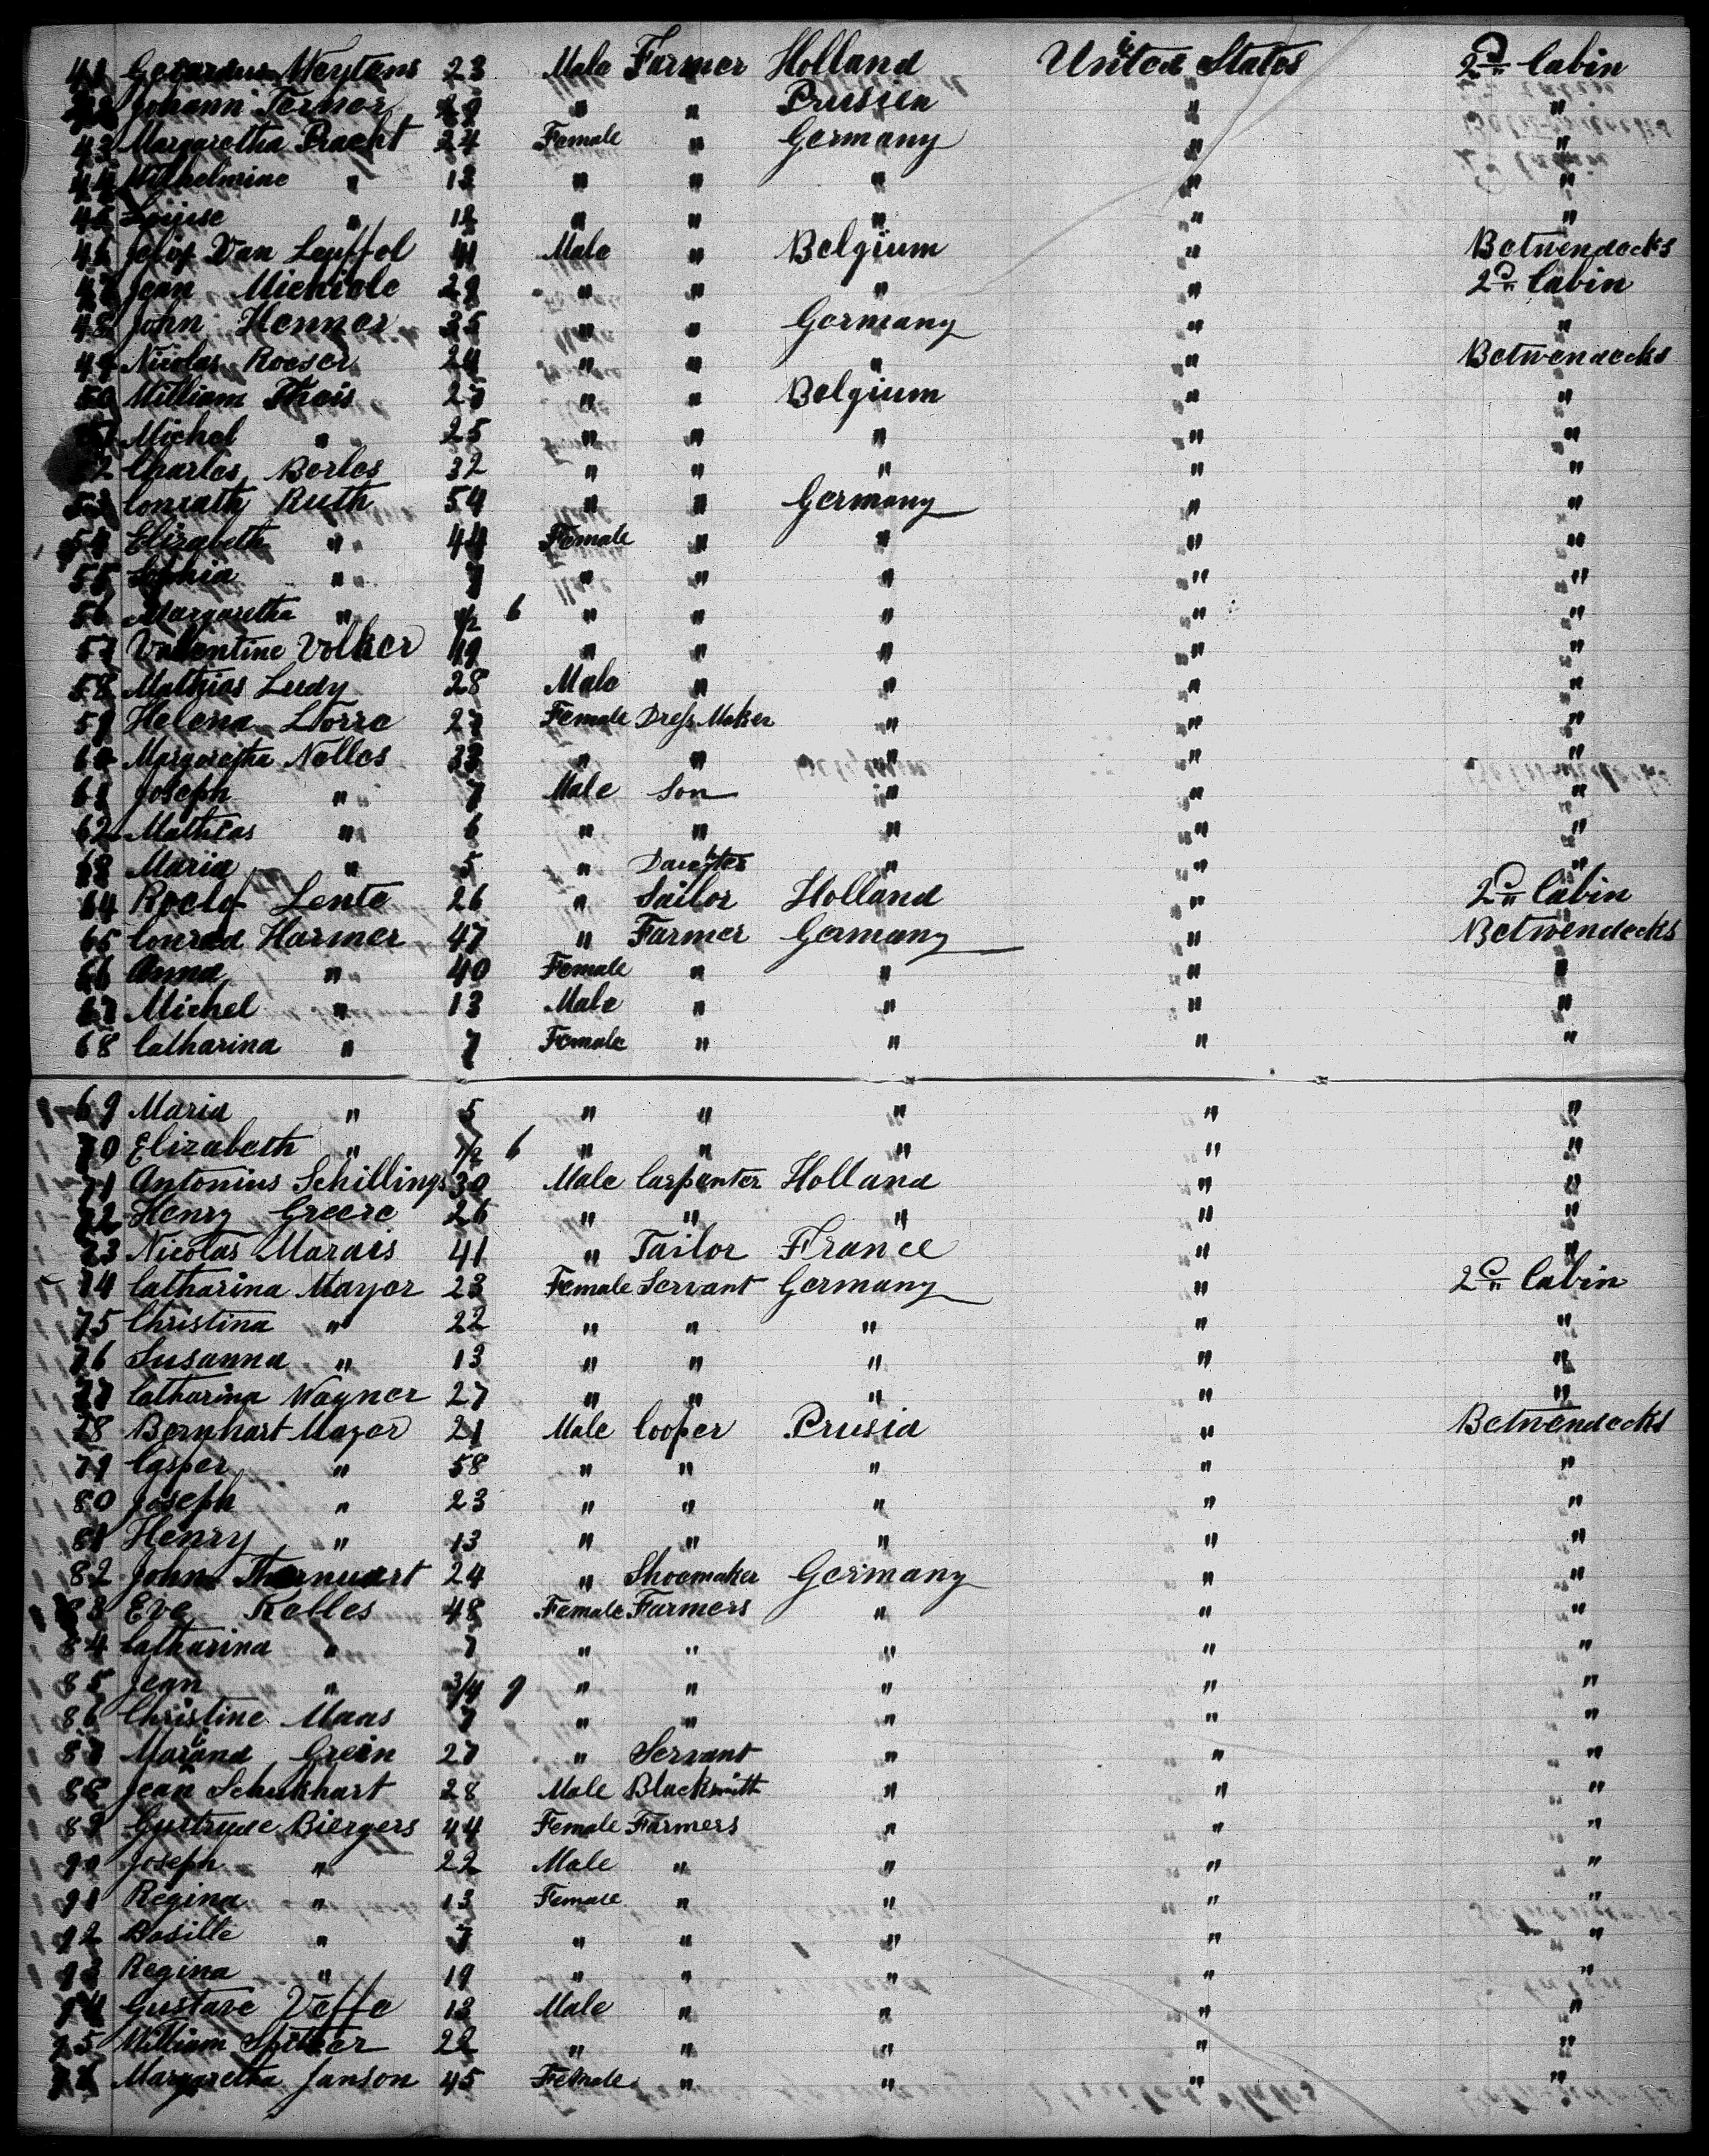 41 Gerardus Weytens 23 Male Farmer Holland United States 2n Cabin
42 Johann Termor 29 " " Prusien " "
43 Margaretha Pracht 24 Female " Germany " "
44 Wilhelmine " 13 " " " " "
45 Louise " 12 " " " " "
46 Van 41 Male " Belgium " Betwendecks
47 Jean Michiele 29 " " " " 2n Cabin
48 John Henner 35 " " Germany " "
49 Nicolas Roeser 24 " " " " Betwendecks
50 William Thois 27 " " Belgium " "
51 Michel " 25 " " " " "
52 Charles Berles 32 " " " " "
53 Conrath Ruth 54 " " Germany " "
54 Elizabeth " 44 Female " " " "
55 Sophia " 7 " " " " "
56 Margaretha " 1/2 6 " " " " "
57 Valentine Volker 19 " " " " "
58 Mathias Ludy 28 Male " " " "
59 Helena Lorre 27 Female Dress Maker " " "
60 Margaretha Nelles 33 " " " " "
61 Joseph " 7 Male Son " " "
62 Mathias " 6 " " " " "
63 Maria " 5 " Daughter " " "
64 Roelof Lente 26 " Sailor Holland " 2n Cabin
65 Conrad Harmer 47 " Farmer Germany " Betwendecks
66 Anna " 40 Female " " " "
67 Michel " 13 Male " " " "
68 Catharina " 7 Female " " " "
69 Maria " 5 " " " " "
70 Elizabeth " 1/2 6 " " " " "
71 Antonius Schillings 30 Male Carpenter Holland " "
72 Henry Greere 26 " " " " "
73 Nicolas Marais 41 " Tailor France " "
74 Catharina Mayer 23 Female Servant Germany " 2n Cabin
75 Christina " 22 " " " " "
76 Susanna " 13 " " " " "
77 Catharina Wagner 27 " " " " "
78 Bernhart Mayer 21 Male Cooper Prusia " Betwendecks
79 Casper " 58 " " " " "
80 Joseph " 23 " " " " "
81 Henry " 13 " " " " "
82 John 24 " Shoemaker Germany " "
83 Eve Kelles 48 Female Farmers " " "
84 Catharina " 7 " " " " "
85 Jean " 3/4 9 " " " " "
86 Christine Maas 7 " " " " "
87 Grein 27 " Servant " " "
88 Jean Schukhart 28 Male Blacksmith " " "
89 Gustrude Biergers 44 Female Farmers " " "
90 Joseph " 22 Male " " " "
91 Regina " 13 Female " " " "
92 Basille " 7 " " " " "
93 Regina " 19 " " " " "
94 Gustave Veffe 13 Male " " " "
95 William Spitzer 22 " " " " "
96 Margaretha Janson 45 Female " " " "